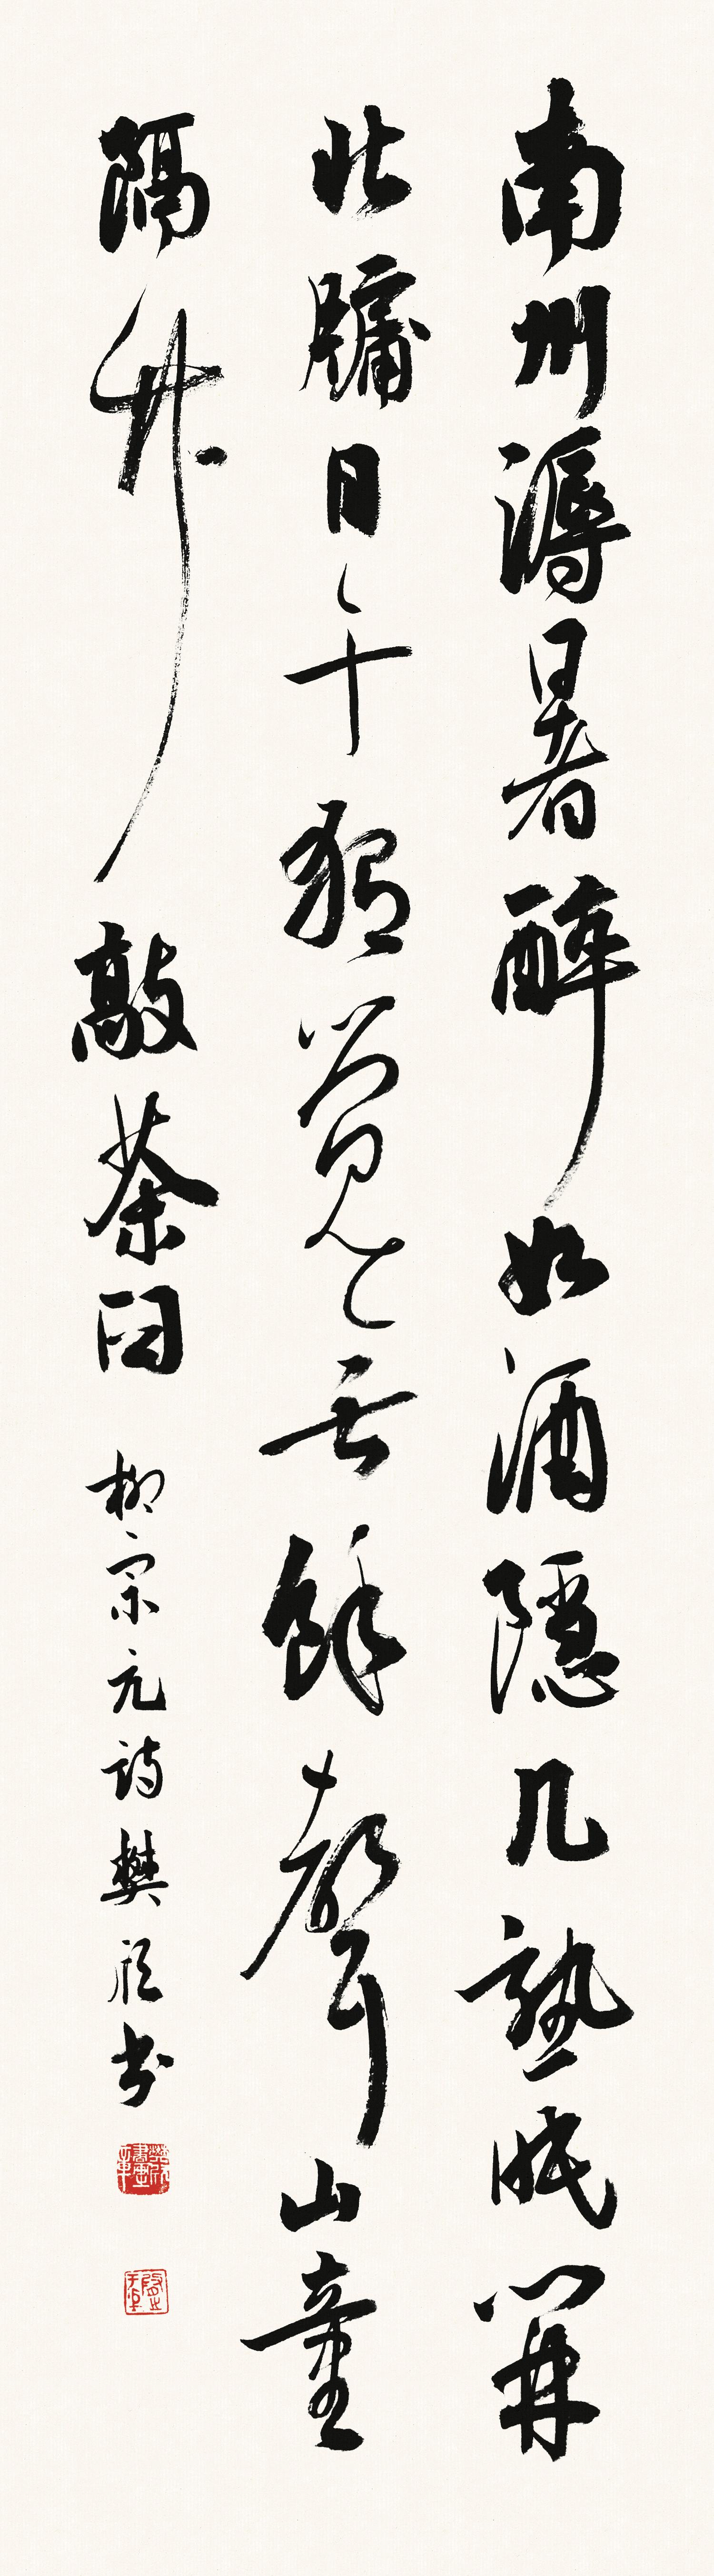 南州溽暑醉如酒隱几熟眠開
北牖日午獨覺无餘聲山童
隔竹敲茶臼 柳宗元詩 樊书